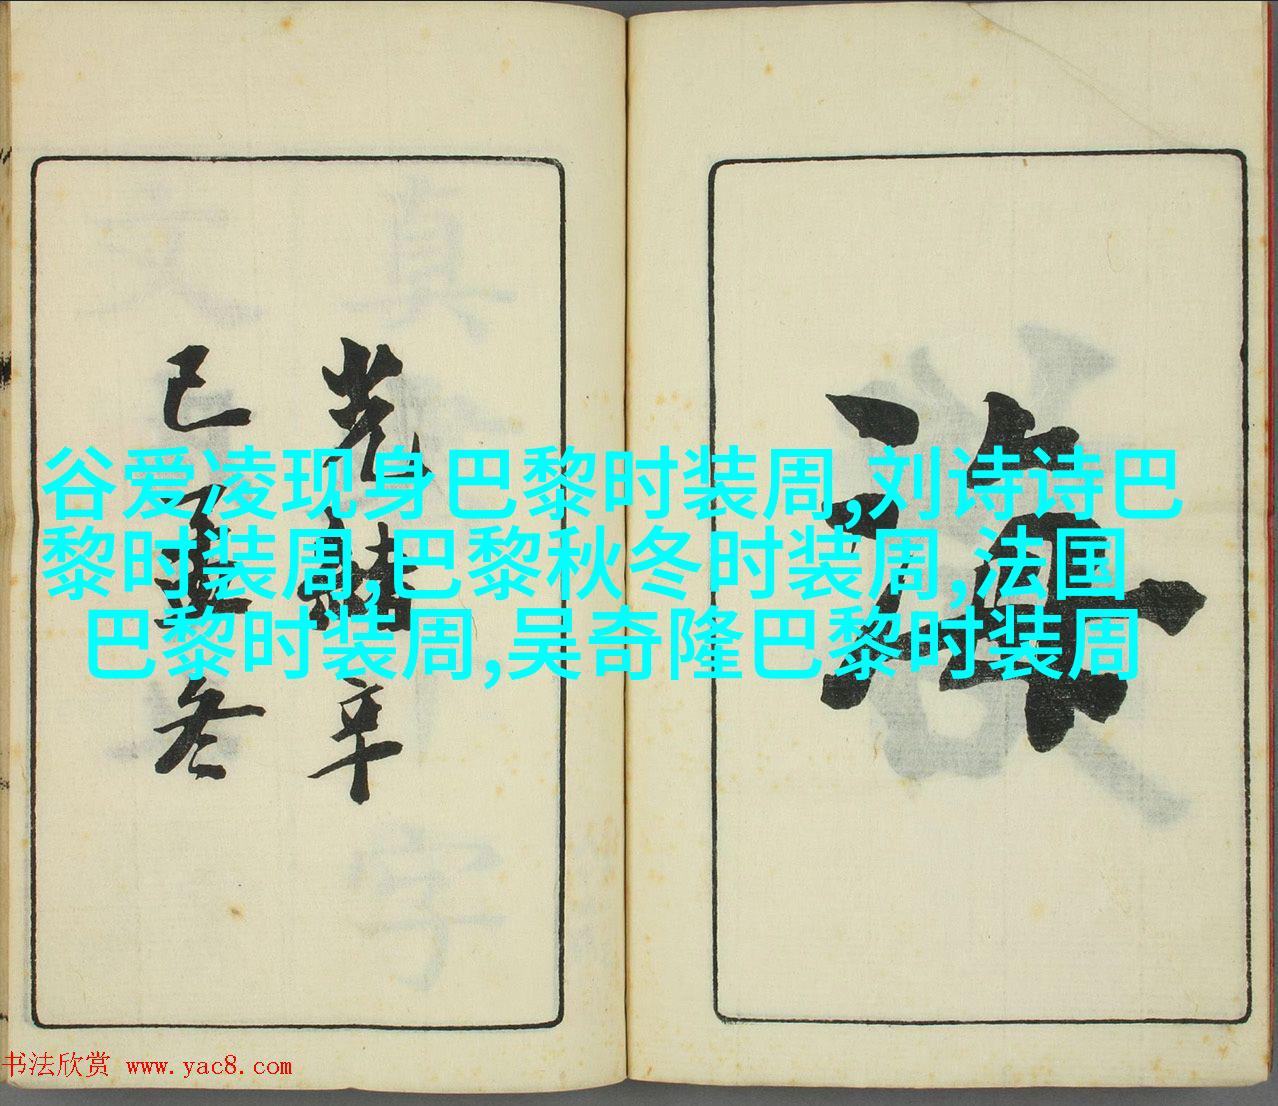 谷爱凌现身巴黎时装周,刘诗诗巴
黎时装周,巴黎秋冬时装周,法国
巴黎时装周,吴奇隆巴黎时装周
光緒
己 冬
书法欣赏 www.yac8.com